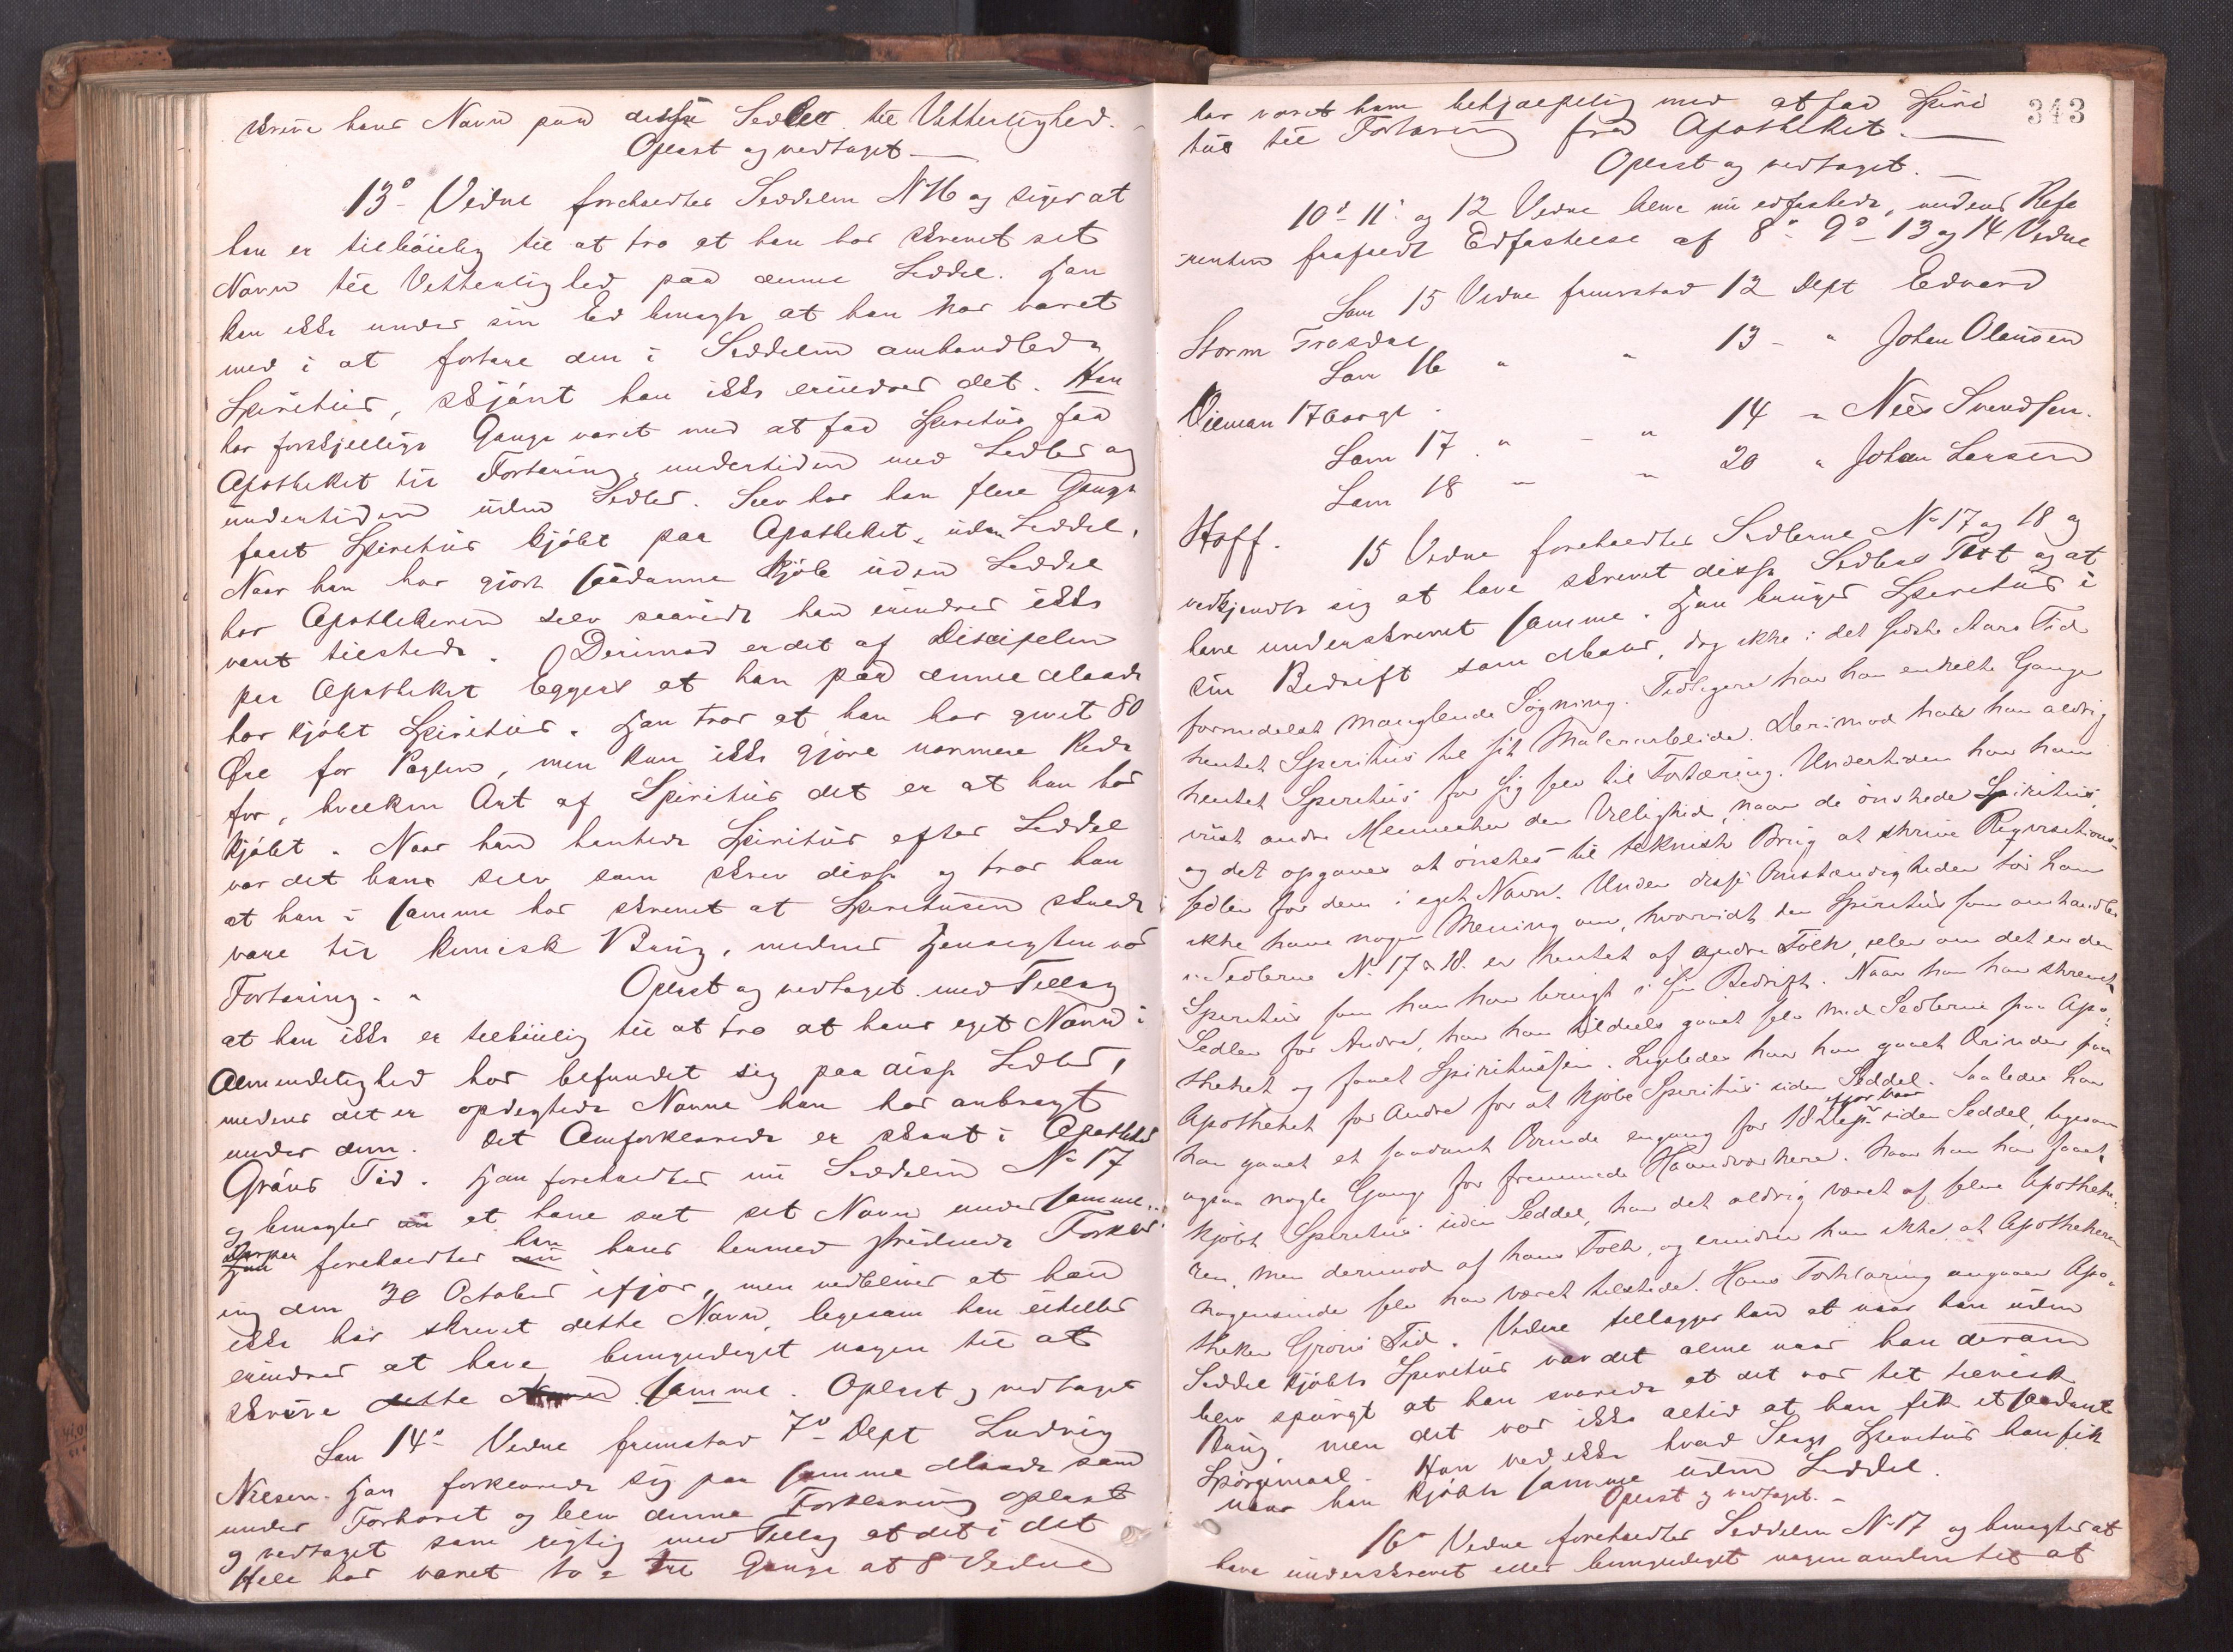 skrive hans Navn paa disse Sedler til Vitterlighed.
Oplæst og vedtaget
13de Vidne foreholdtes Seddelen No 16 og siger at
han er tilbøielig til at tro at han har skrevet sit
Navn til Vitterlighed paa denne Seddel. Han
kan ikke under sin Ed benægte at han har været
med i at fortære den i Seddelen omhandlede
Spiritus, skjønt han ikke erindrer det. Han
har forskjellige Gange været med at faa Spiritus fra
Apotheket til Fortæring, undertiden med Sedler og
undertiden uden Sedler. Selv har han flere Gange
faaet Spiritus kjøbt paa Apotheket uden Seddel.
Naar han har gjort saadanne Kjøb uden Seddel
har Apothekeren selv saavidt han erindrer ikke
været tilstede. Derimod er det af Disciplen
paa Apotheket at han paa denne Maade
har kjøbt Spiritus. Han tror at han har givet 80
Øre for Pæglen, men kan ikke gjøre nærmere Rede
for, hvilken Art af Spiritus det er at han har
kjøbt. Naar han hentede Spiritus efter Seddel
var det hans selv som skrev disse og tror han
at han i samme har skrevet at Spiritusen skulde
være til kemisk Brug, medens Hensigten var
Fortæring. Oplæst og vedtaget med Tillæg
at han ikke er tilbøielig til at tro at hans eget Navn i
Almindelighed har befundet sig paa disse Sedler,
medens det er opdigtede Navne han har anbragt
under dem. Det Omforklarede er skeet i Apotheker
Grøns Tid. Han foreholdtes nu Seddelen No 17
og benægter at have sat sit Navn under samme.
foreholdtes han hans hermed stridende Forklar
ing den 30 October ifjor, men vedbliver at han
ikke har skrevet dette Navn, ligesom han ei heller
erindrer at have bemyndiget nogen til at
skrive dette samme. Oplæst og vedtaget
Som 14de Vidne fremstod 7de Dept Ludvig
Nilsen. Han forklarede sig paa samme Maade som
under Forhøret og blev denne Forklaring oplæst
og vedtaget som rigtig med Tillæg at det i det
Hele har været to a tre Gange at 8 Vidne
343
har været ham behjælpelig med at faa Spiri
tus til Fortæring fra Apotheket.
Oplæst og vedtaget.
10de 11 og 12 Vidne bleve nu edfæstede, medens Refe
renten frafaldt Edfæstelse af 8de 9de 13 og 14 Vidne
Som 15 Vidne fremstod 12 Dept Edvard
Storm Trosdal
Som 16 " " 13 - " Johan Olaussen
Som 17 " - " 14 " Nils Svendsen.
Som 18 " " 20 " Johan Larsen
Hoff.
15 Vidne foreholdtes Sedlerne No 17 og 18 og
vedkjendte sig at have skrevet disse Sedlers Text og at
have underskrevet samme. Han bruger Spiritus i
sin Bedrift som Maler, dog ikke i det sidste Aars Tid
formedelst manglende Søgning. Tidligere har han enkelte Gange
hentet Spiritus til sit Malerarbeide. Derimod har han aldrig
hentet Spiritus for sig selv til Fortæring. Undertiden har han
viist andre Mennesker den Villighed, naar de ønskede Spiritus,
og det opgaves at ønskes til teknisk Brug at skrive Reqvisitions-
sedler for dem i eget Navn. Under disse Omstændigheder tør han
ikke have nogen Mening om, hvorvidt den Spiritus som omhandles
i Sedlerne No 17 & 18 er hentet af andre Folk, eller om det er den
Spiritus som han har brugt i sin Bedrift. Naar han har skrevet
Sedler for Andre, har han tildeels gaaet selv med Sedlerne paa Apo-
theket og faaet Spiritussen. Ligeledes har han gaaet Ærinder paa
Apotheket for Andre for at kjøbe Spiritus uden Seddel. Saaledes har
han gaaet et saadant Ærinde engang for 18 Dept ifjor Vaar uden Seddel, ligesom
ogsaa nogle Gange for fremmede Haandværkere. Naar han har faaet
kjøbt Spiritus uden Seddel, har det aldrig været af selve Apotheke-
ren, men derimod af hans Folk, og erindrer han ikke at Apothekeren
nogensinde selv har været tilstede. Hans Forklaring angaaer Apo-
theker Grøns Tid. Vidne tillægger han at naar han uden
Seddel kjøbte Spiritus var det alene naar han derom
blev spurgt at han svarede at det var til teknisk
Brug men det var ikke altid at han fik et saadant
Spørgsmaal. Han ved ikke hvad Slags Spiritus han fik
naar han kjøbte samme uden Seddel.
Oplæst og vedtaget.
16de Vidne foreholdtes Seddelen No 17 og benægter at
have underskrevet eller bemyndiget nogen anden til at